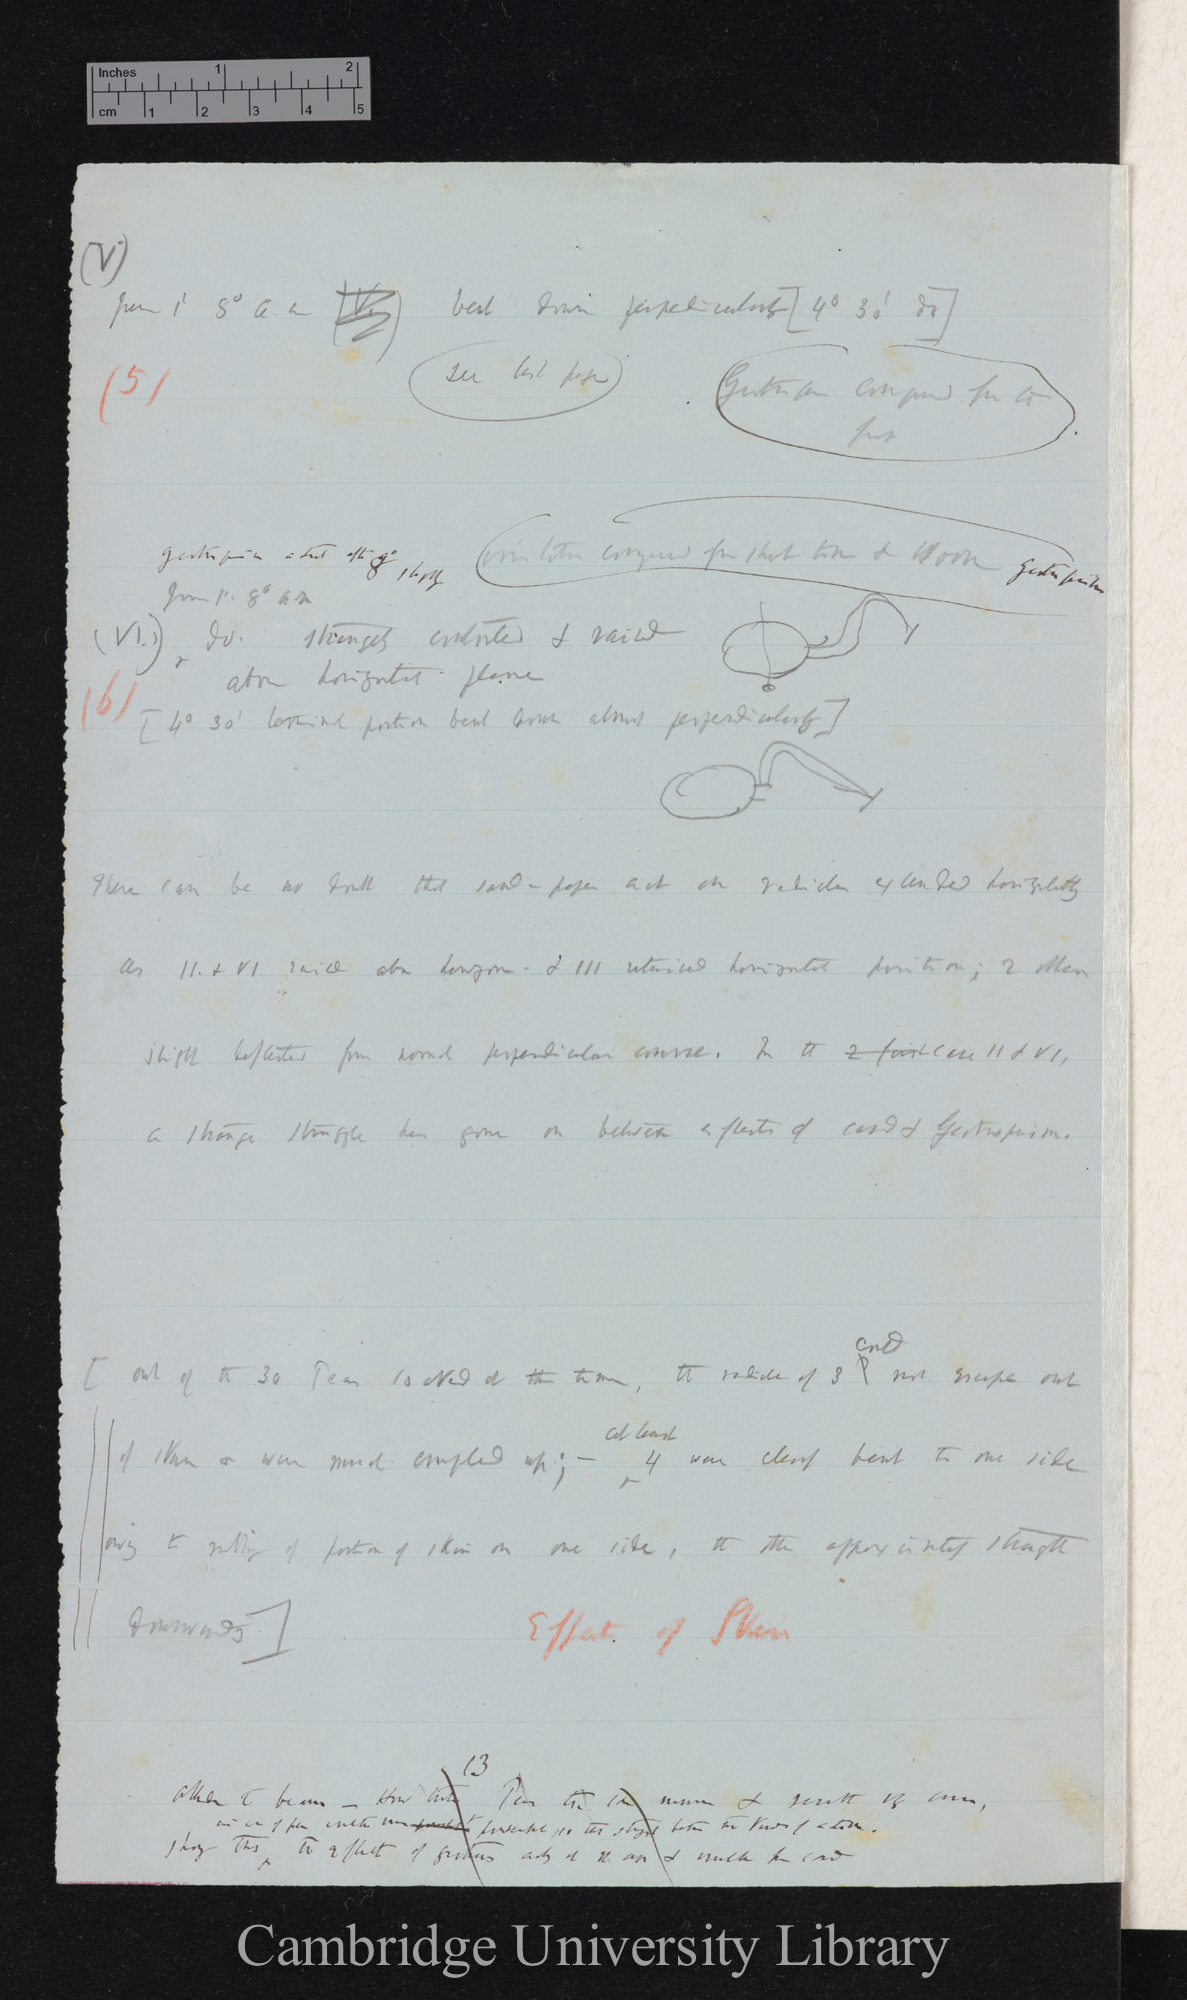 Inches 1 2
cm 1 2 3 4 5
(V)
from 1' 8° a.m bent down perpendicularly [4° 30' do]
(5)
see last page
Geotropism conquered for
first
geotropism acted after 8° slightly
irritation conquered for short time & then Geotropism
from 1'. 8° am
(VI.) do. strangely contorted & raised
above horizontal plane
(6)
[4° 30' terminal portion bent down almost perpendicularly]
There can be no doubt that sand-paper acts on radicles extended horizontally
as II. & VI raised above horizon - & III retained horizontal position; 2 others
slightly deflected from normal perpendicular course. In the 2 first case II & VI,
a strange struggle has gone on between effects of card & Geotropism.
[out of the 30 Peas looked at this time, the radicle of 3 could not escape out
of skin & were much crumpled up; — at least 4 were clearly bent to one side
owing to rubbing of portion of skin on one side, the other approximately straight
downwards]
Effect of Skin
13
allude to beans — How these Peas the in manner & result of curve,
show this the effect of geotropism acting at the apex & under the card
Cambridge University Library